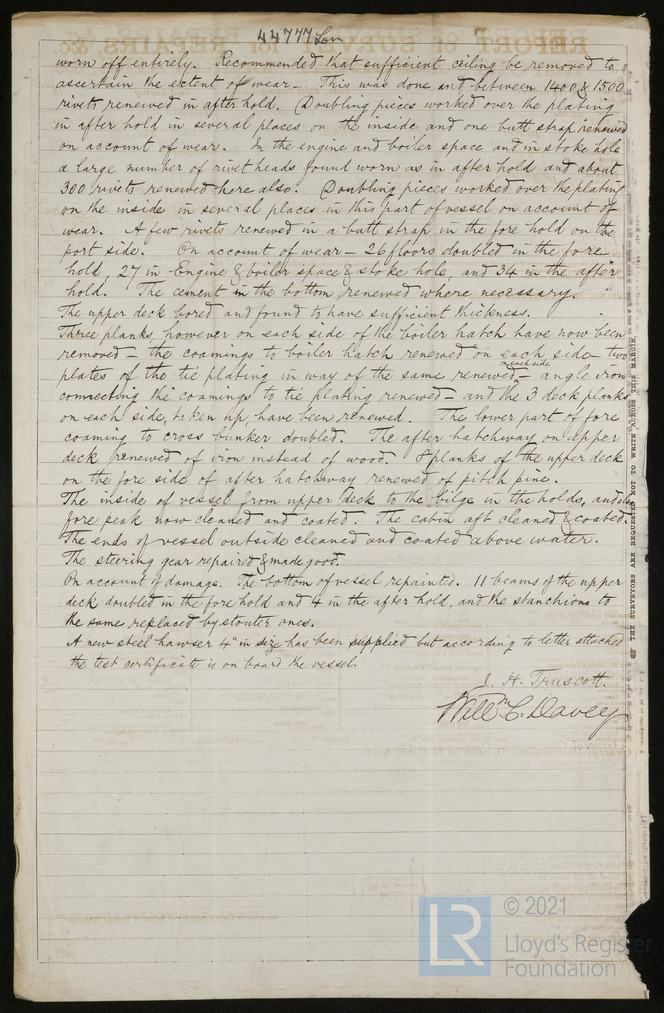 44777 Lon
worn off entirely. Recommended that sufficient ceiling be removed to
ascertain the extent of wear. This was done and between 1400 & 1500
rivets renewed in after hold. Doubling pieces worked over the plating
in after hold in several places on the inside and one butt strap renewed
on account of wear. In the engine and boiler space and in stoke hole
a large number of rivet heads found worn as in after hold and about
300 rivets renewed here also. Doubling pieces worked over the plating
on the inside in several places in this part of vessel on account of
wear. A few rivets renewed in a butt strap in the fore hold on the
port side. On account of wear – 26 floors doubled in the fore
hold, 27 in Engine & boiler space & stoke hole, and 34 in the after
hold. The cement in the bottom renewed where necessary.
The upper deck bored and found to have sufficient thickness.
Three planks however on each side of the boiler hatch have now been
removed – the coamings to boiler hatch renewed on each side – two
plates of the tie plating in way of the same renewed each side – angle iron
connecting the coamings to tie plating renewed – and the 3 deck planks
on each side, taken up, have been renewed. The lower part of fore
coaming to cross bunker doubled. The after hatchway on upper
deck renewed of iron instead of wood. 8 planks of the upper deck
on the fore side of after hatchway renewed of pitch pine.
The inside of vessel from upper deck to the bilge in the holds, and also
fore peak now cleaned and coated. The cabin aft cleaned & coated.
The ends of vessel outside cleaned and coated above water.
The steering gear repaired & made good.
On account of damage. The bottom of vessel repainted. 11 beams of the upper
deck doubled in the fore hold and 4 in the after hold, and the stanchions to
the same replaced by stouter ones.
A new steel hawser 4" in size has been supplied but according to letter attached
the test certificate is on board the vessel.
J. H. Truscott.
Willm. C. Davey
THE SURVEYORS ARE REQUESTED NOT TO WRITE ACROSS THIS MARGIN.
LR
© 2021
Lloyd's Register
Foundation